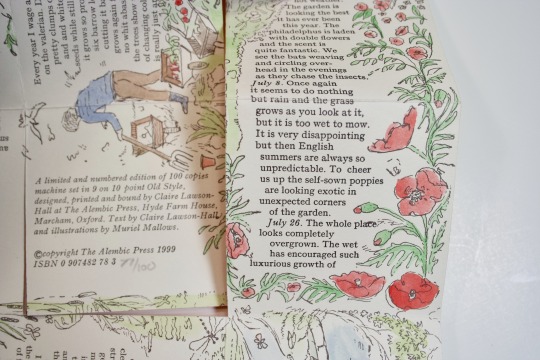 Every year I wage a
on the valerian.
pretty clumps o
and white
seeds while still
it grows so
six barrow
cutting it
grows again
the trees show
of changing
is really just
A limited and numbered edition of 100 copies
machine set in 9 on 10 point Old Style,
designed, printed and bound by Claire Lawson-
Hall at The Alembic Press, Hyde Farm House,
Marcham, Oxford. Text by Claire Lawson-Hall
and illustrations by Muriel Mallows.
©copyright The Alembic Press 1999
ISBN 0 907482 78 3 77/100
The garden is
looking the best
it has ever been
this year. The
philadelphus is laden
with double flowers
and the scent is
quite fantastic. We
see the bats weaving
and circling over-
head in the evenings
as they chase the insects.
July 8. Once again
it seems to do nothing
but rain and the grass
grows as you look at it,
but it is too wet to mow.
It is very disappointing
but then English
summers are always so
unpredictable. To cheer
us up the self-sown poppies
are looking exotic in
unexpected corners
of the garden.
July 26. The whole place
looks completely
overgrown. The wet
has encouraged such
luxurious growth of